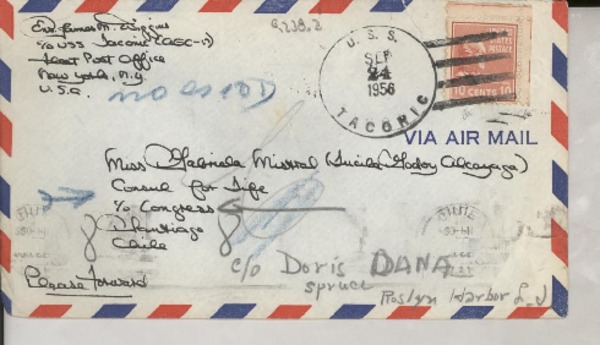 Env. James M. Wiggins
c/o USS Taconic (AGC-17)
Fleet Post Office
New York, N.Y.
U.S.A.
no es CD
U. S. S.
SEP
24
1956
TACONIC
STATES
POSTAGE
10 CENTS 10
VIA AIR MAIL
Miss Gabriela Mistral (Lucila Godoy Alcayaga)
Consul for Life
c/o Congress
Santiago
Chile
Please Forward
c/o Doris DANA
spruce
Roslyn Harbor L-I